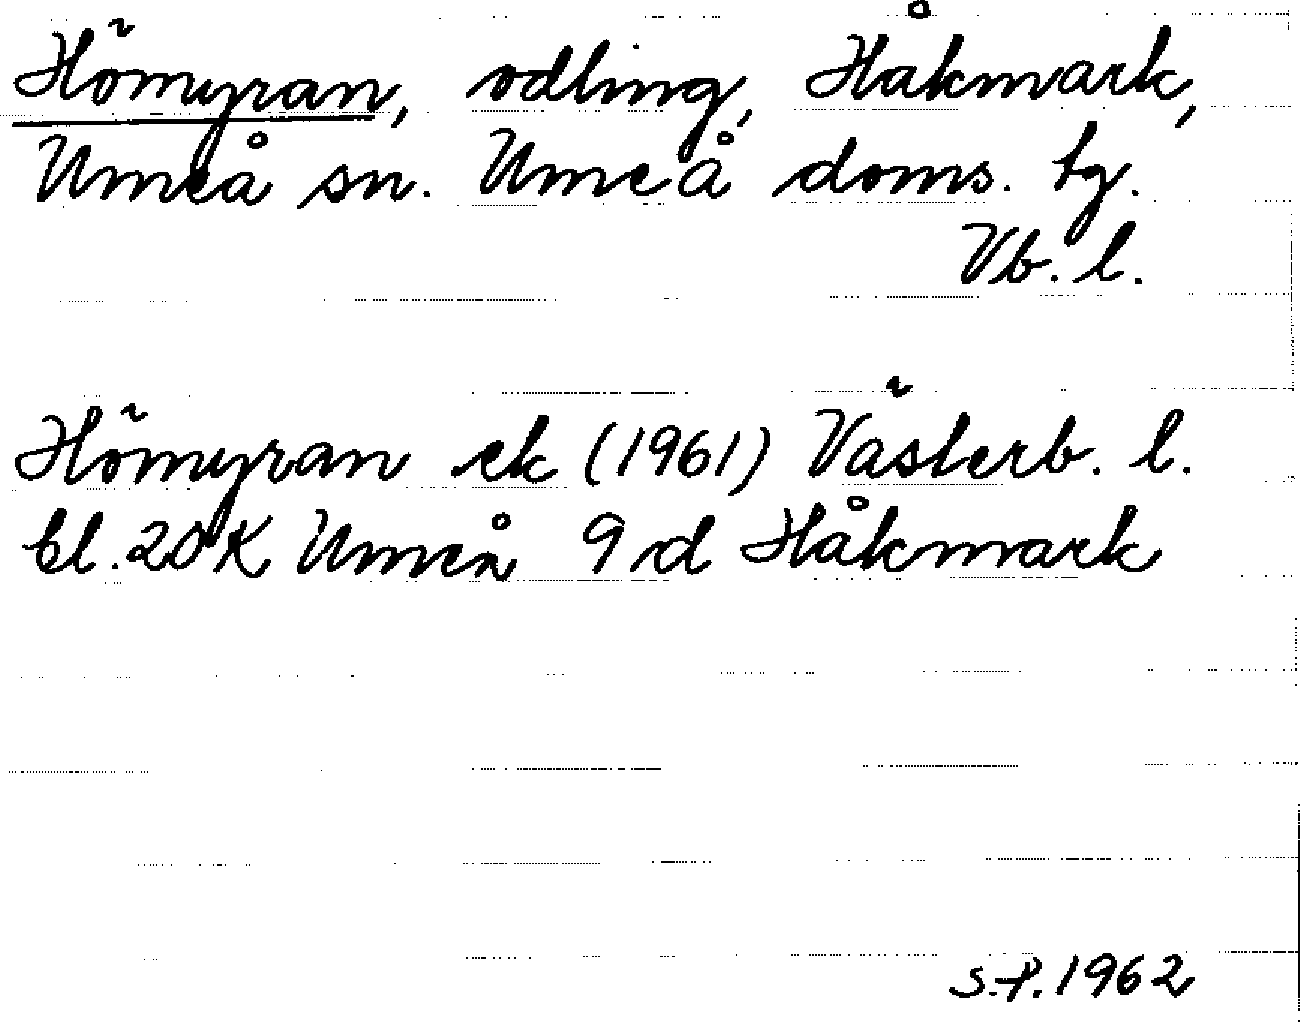 Hömyran, odling, Håkmark,
Umeå sn. Umeå doms. tg.
Vb. l.
Hömyran ek (1961) Västerb. l.
bl. 20 K Umeå 9 d Håkmark
S.P. 1962